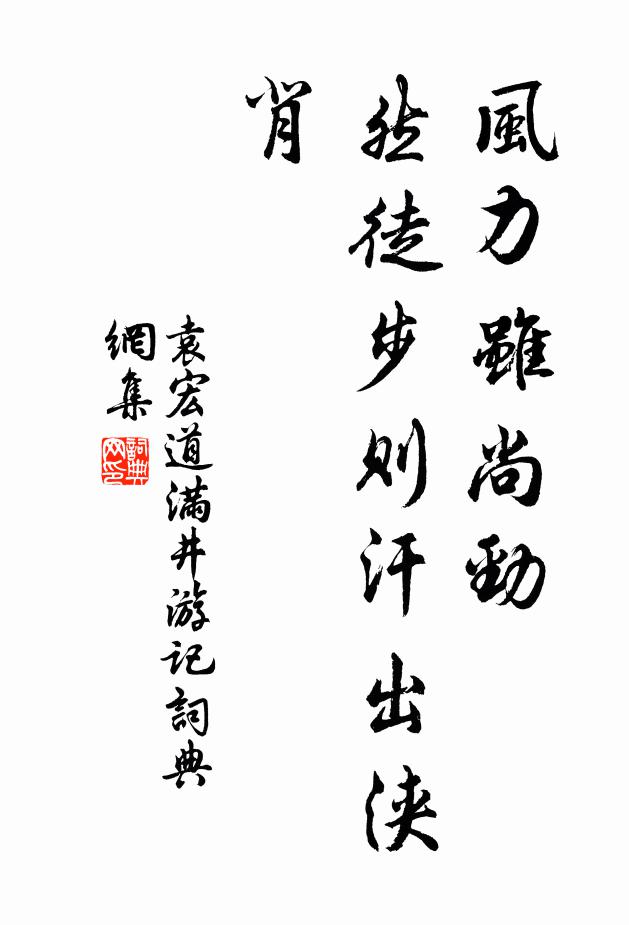 風力雖尚勁
然徒步則汗出浹
背
袁宏道滿井游記詞典
網集
詞典
网印